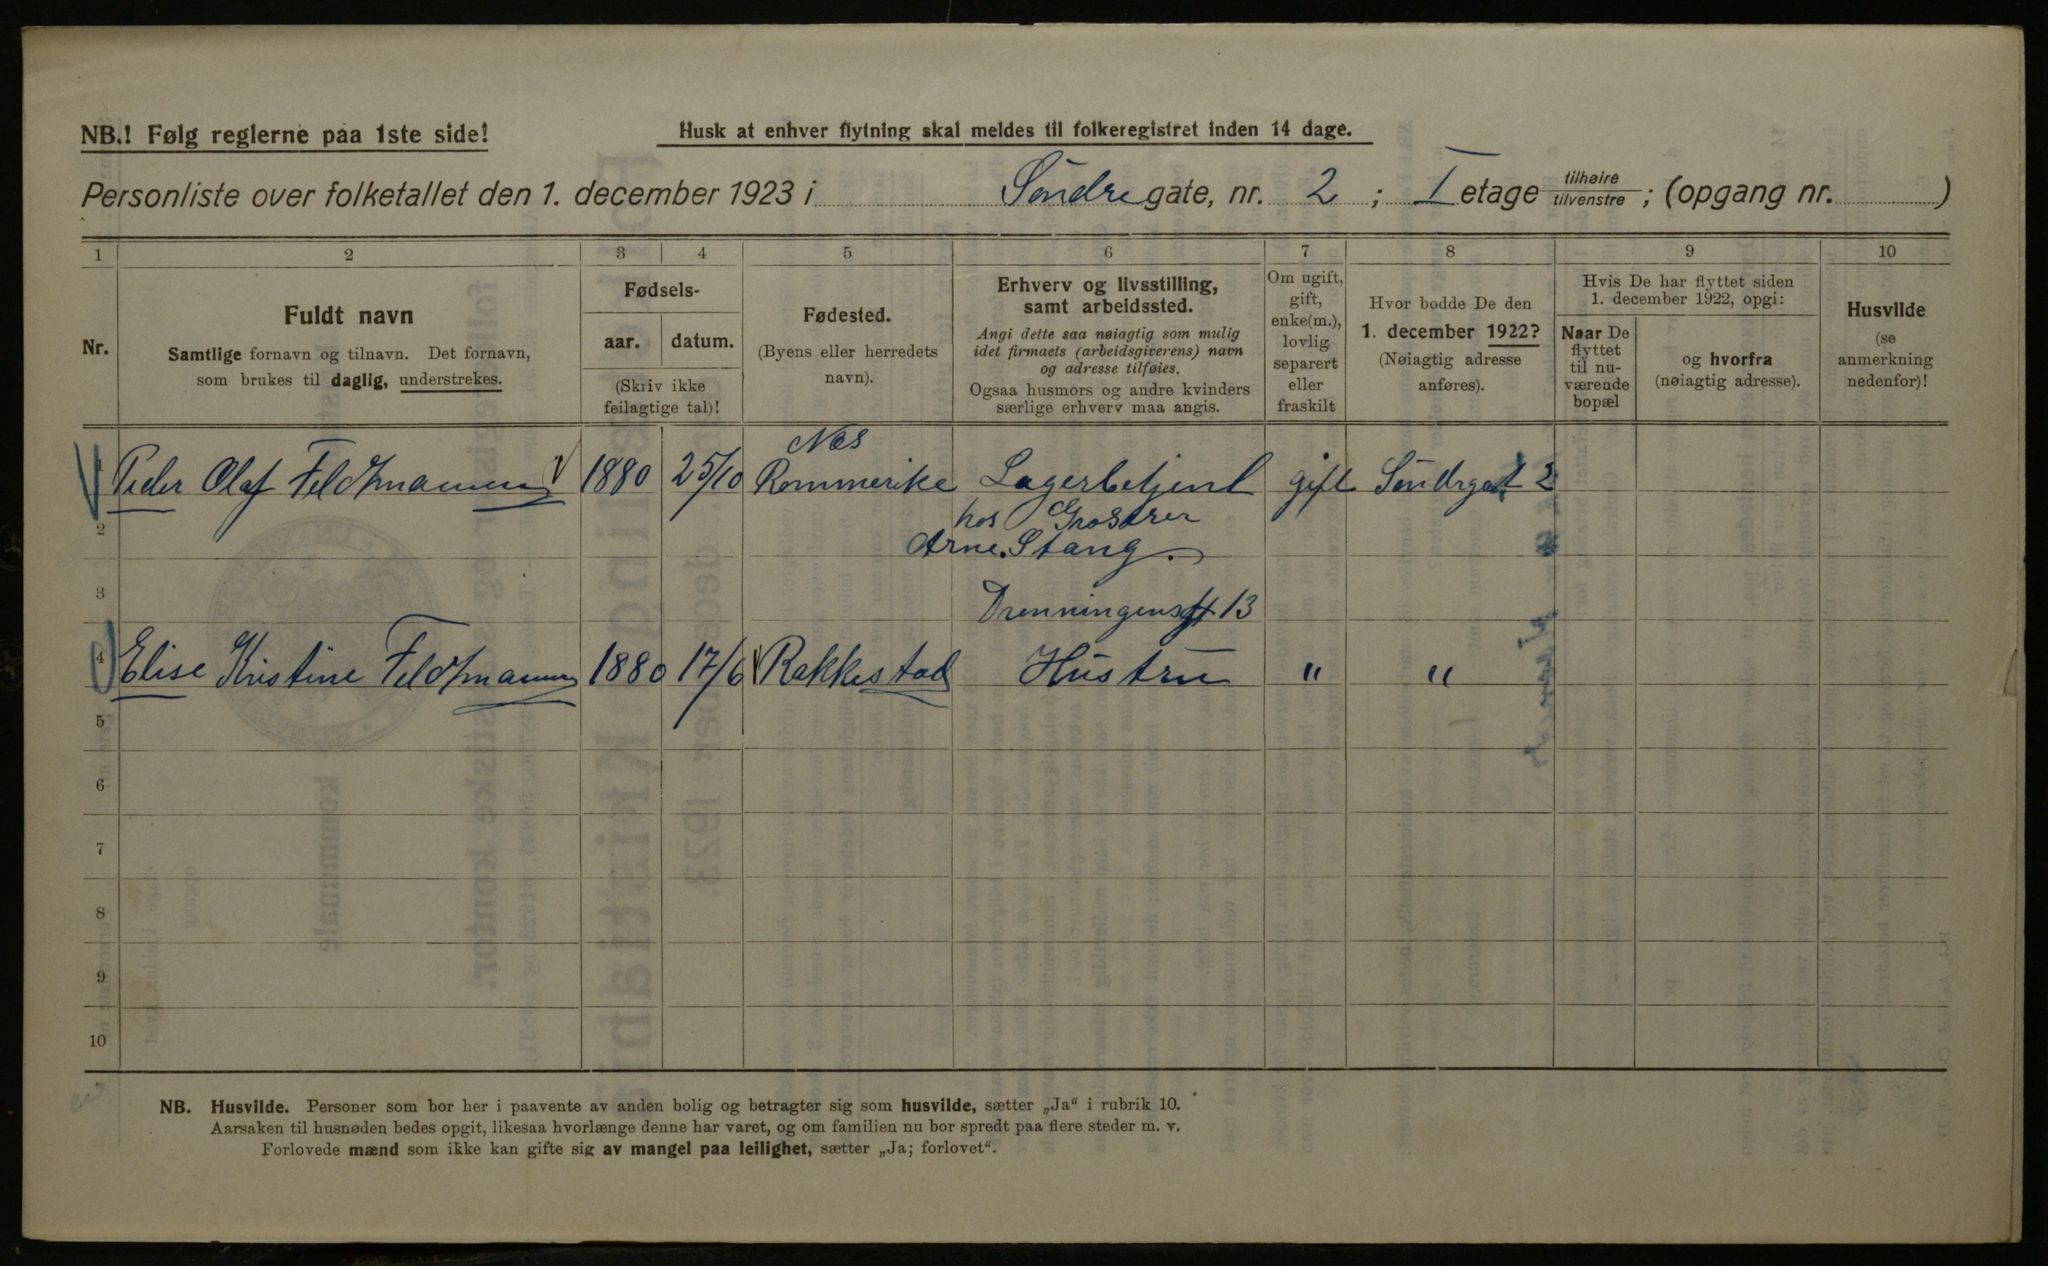 NB.! Følg reglerne paa 1ste side!
Husk at enhver flytning skal meldes til folkeregistret inden 14 dage.
Personliste over folketallet den 1. december 1923 i Söndre gate, nr. 2 ; I etage tilhøire tilvenstre ; (opgang nr. )
1 2 3 4 5 6 7 8 9 10
Nr.
Fuldt navn
Samtlige fornavn og tilnavn. Det fornavn,
som brukes til daglig, understrekes.
Fødsels-
aar. datum.
(Skriv ikke
feilagtige tal)!
Fødested.
(Byens eller herredets
navn).
Erhverv og livsstilling,
samt arbeidssted.
Angi dette saa nøiagtig som mulig
idet firmaets (arbeidsgiverens) navn
og adresse tilføies.
Ogsaa husmors og andre kvinders
særlige erhverv maa angis.
Om ugift,
gift,
enke(m.),
lovlig
separert
eller
fraskilt
Hvor bodde De den
1. december 1922?
(Nøiagtig adresse
anføres).
Hvis De har flyttet siden
1. december 1922, opgi:
Naar De
flyttet
til nu-
værende
bopæl
og hvorfra
(nøiagtig adresse).
Husvilde
(se
anmerkning
nedenfor)!
Næs
1 Peder Olaf Feldtmann 1880 25/10 Rommerike Lagerbetjent gift Söndregat 2
2 hos Grosserer
Arne Stang.
3 Dronningensgt 13
4 Elise Kristine Feldtmann 1880 17/6 Rakkestad Hustru " "
5
6
7
8
9
10
NB. Husvilde. Personer som bor her i paavente av anden bolig og betragter sig som husvilde, sætter „Ja“ i rubrik 10.
Aarsaken til husnøden bedes opgit, likesaa hvorlænge denne har varet, og om familien nu bor spredt paa flere steder m. v.
Forlovede mænd som ikke kan gifte sig av mangel paa leilighet, sætter „Ja; forlovet“.